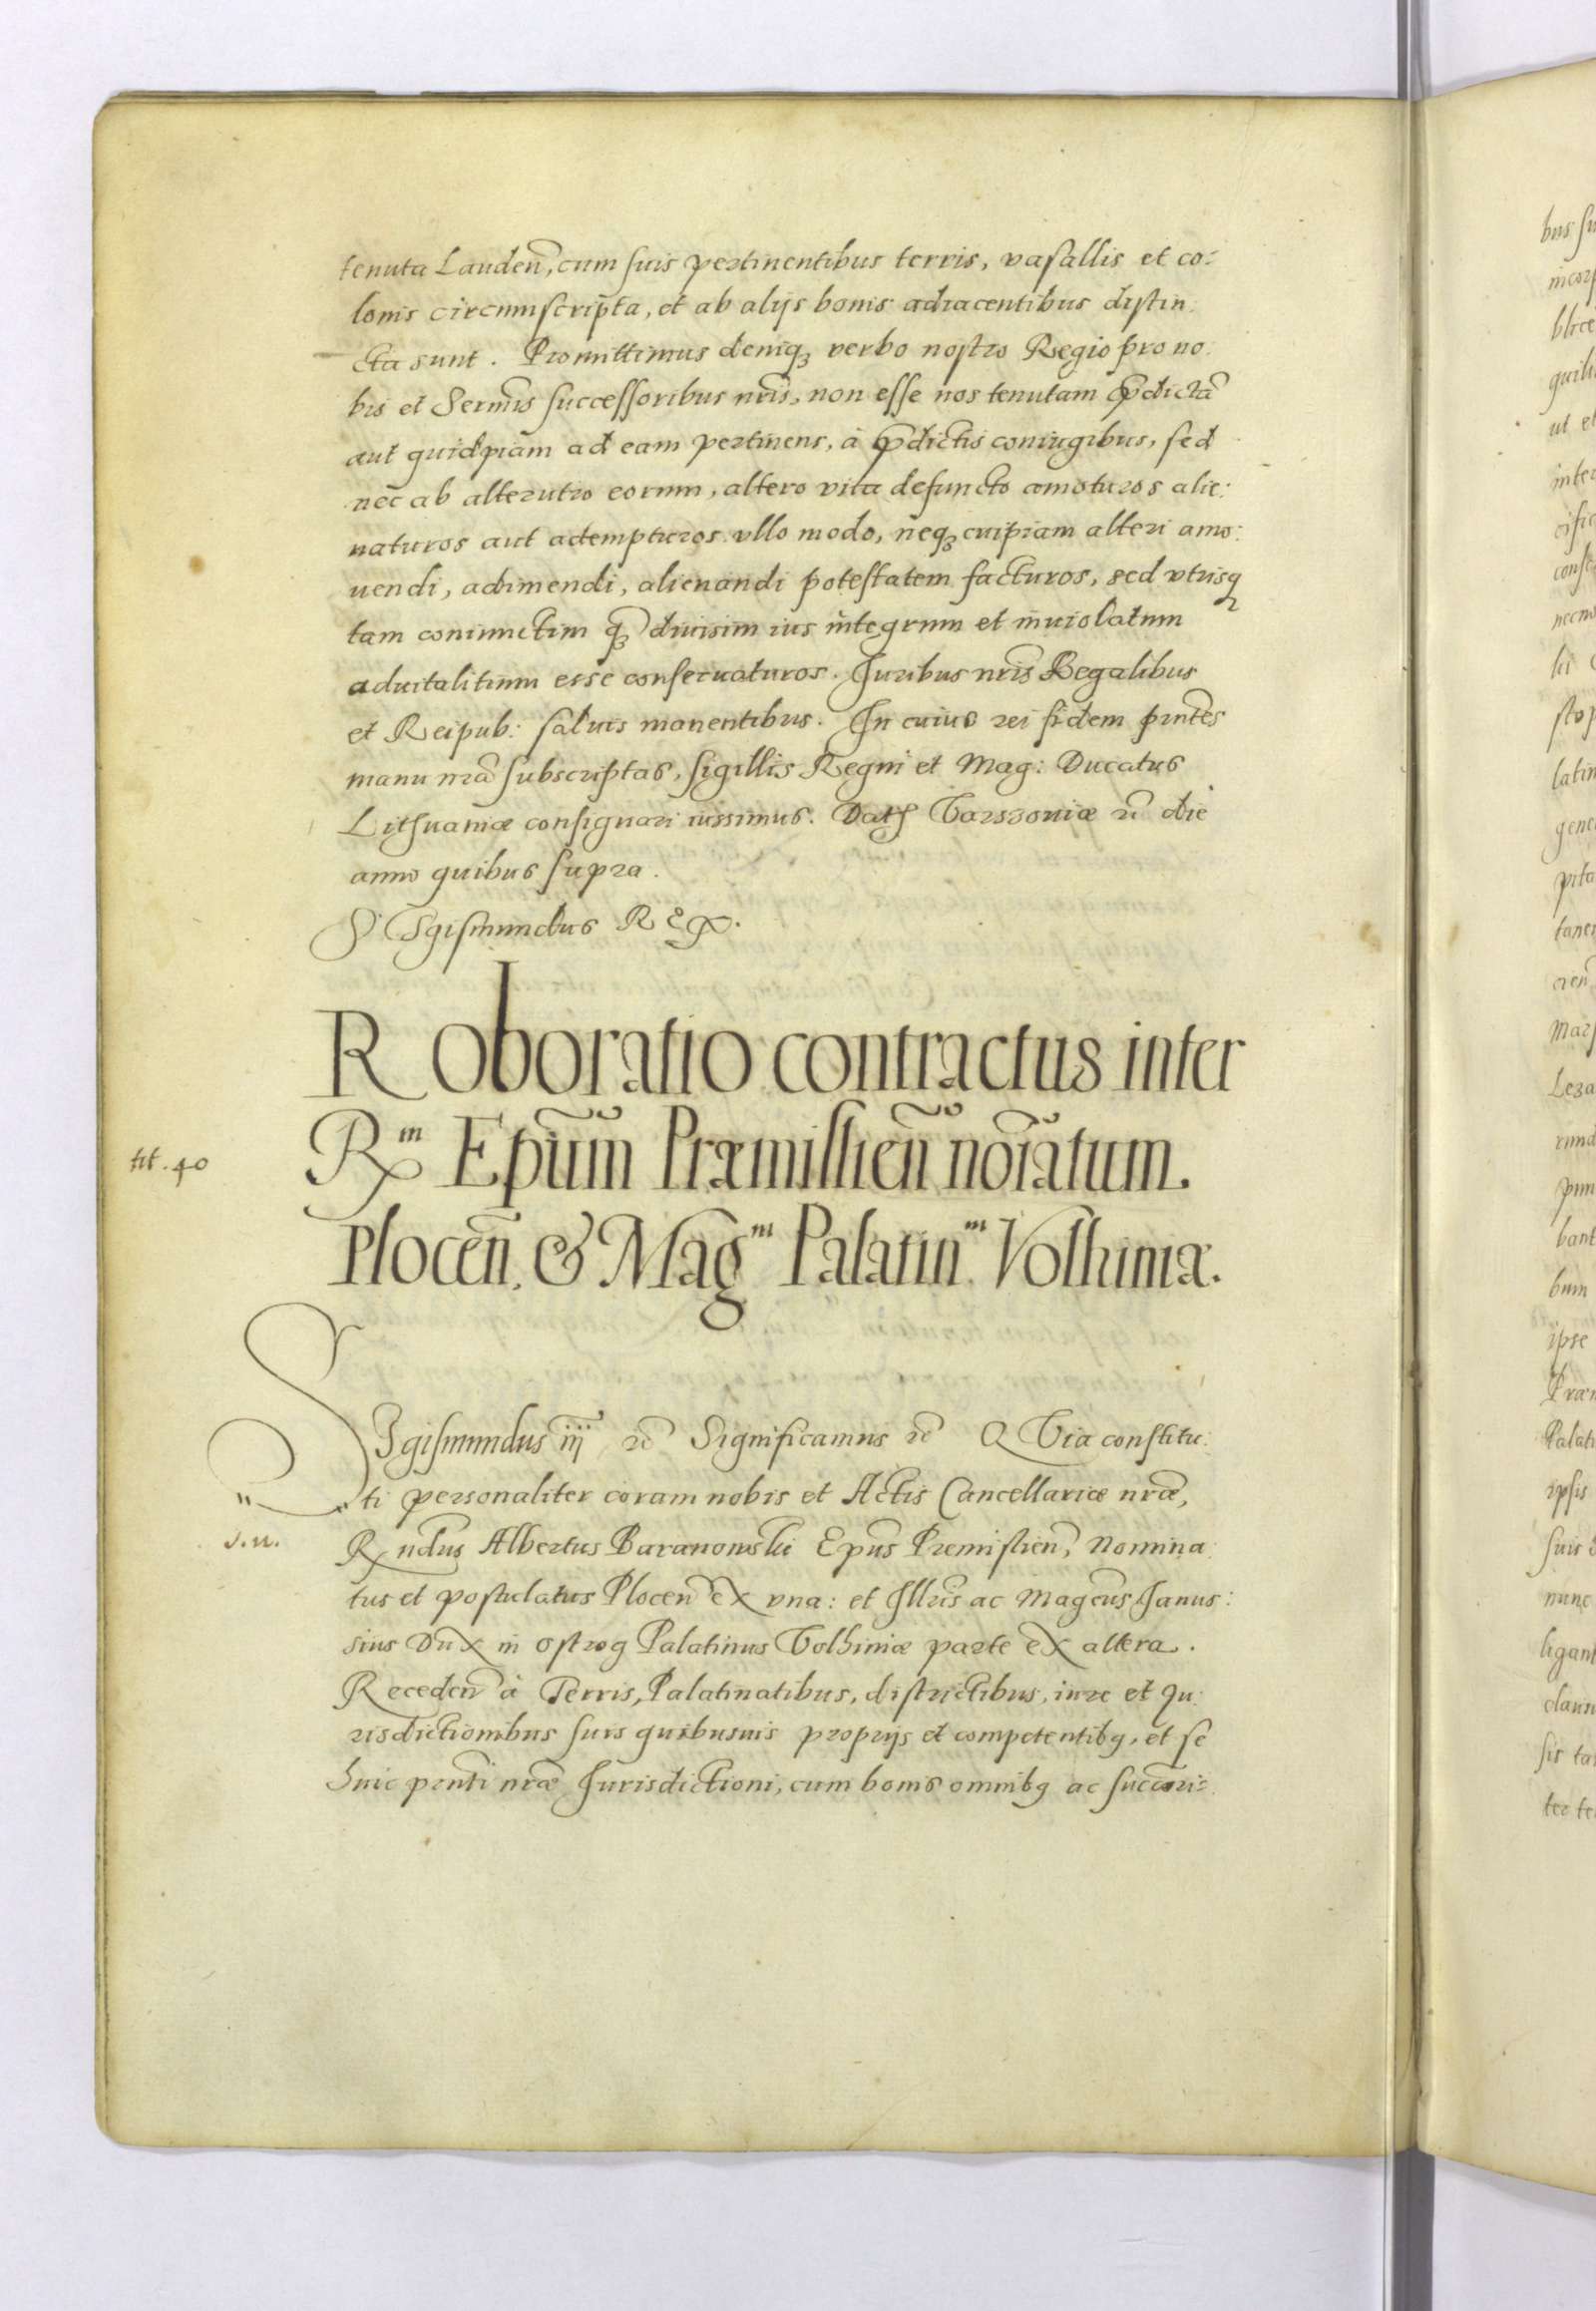 tenuta Lauden̄, cum suis pertinentibus terris, vasallis et co:
lonis circumscripta, et ab alijs bonis adiacentibus distin
cta sunt. Promittimus deniq3 verbo nostro Regio pro no:
bis et Sermis successoribus nris, non esse nos tenutam p̄dictā
aut quidpiam ad eam pertinens, à p̄dictis coniugibus, sed
nec ab alterutro eorum, altero vita defuncto amoturos alie:
naturos aut adempturos ullo modo, neq3 cuipiam alteri amo:
uendi, adimendi, alienandi potestatem facturos, sed vtrisq
tam coniunctim q̄3 diuisim ius integrum et inuiolatum
aduitalitium esse conseruaturos. Juribus nris Regalibus
et Reipub: saluis manentibus. In cuius rei fidem pnt̄es
manu nr̄a subscriptas, sigillis Regni et Mag: Ducatus
Lithuaniæ consignari iussimus. Dat Varszouiæ die
anno quibus supra.
Sigismundus REX.
Roboratio contractus inter
Rm Ep̄um Præmislien̄ noīatum
tit. 40
Plocen̄, & Magm Palatinm Volhiniæ.
Sigismundus iij rc̄ Significamus rc̄ QVia constitu:
ti personaliter coram nobis et Actis Cancellariæ nræ,
s.n.
Rndus Albertus Baranowski Ep̄us Premislien̄, Nomina
tus et postulatus Plocen̄ ex vna: et Illris ac Magcus Janus:
sius Dux in Ostrog Palatinus Volhiniæ parte ex altera.
Receden̄ à Terris, Palatinatibus, districtibus, iure et Ju:
risdictionibus suis quibusuis proprijs et competentibq, et se
huic prnti nræ Jurisdictioni, cum bonis omnibq ac succori: